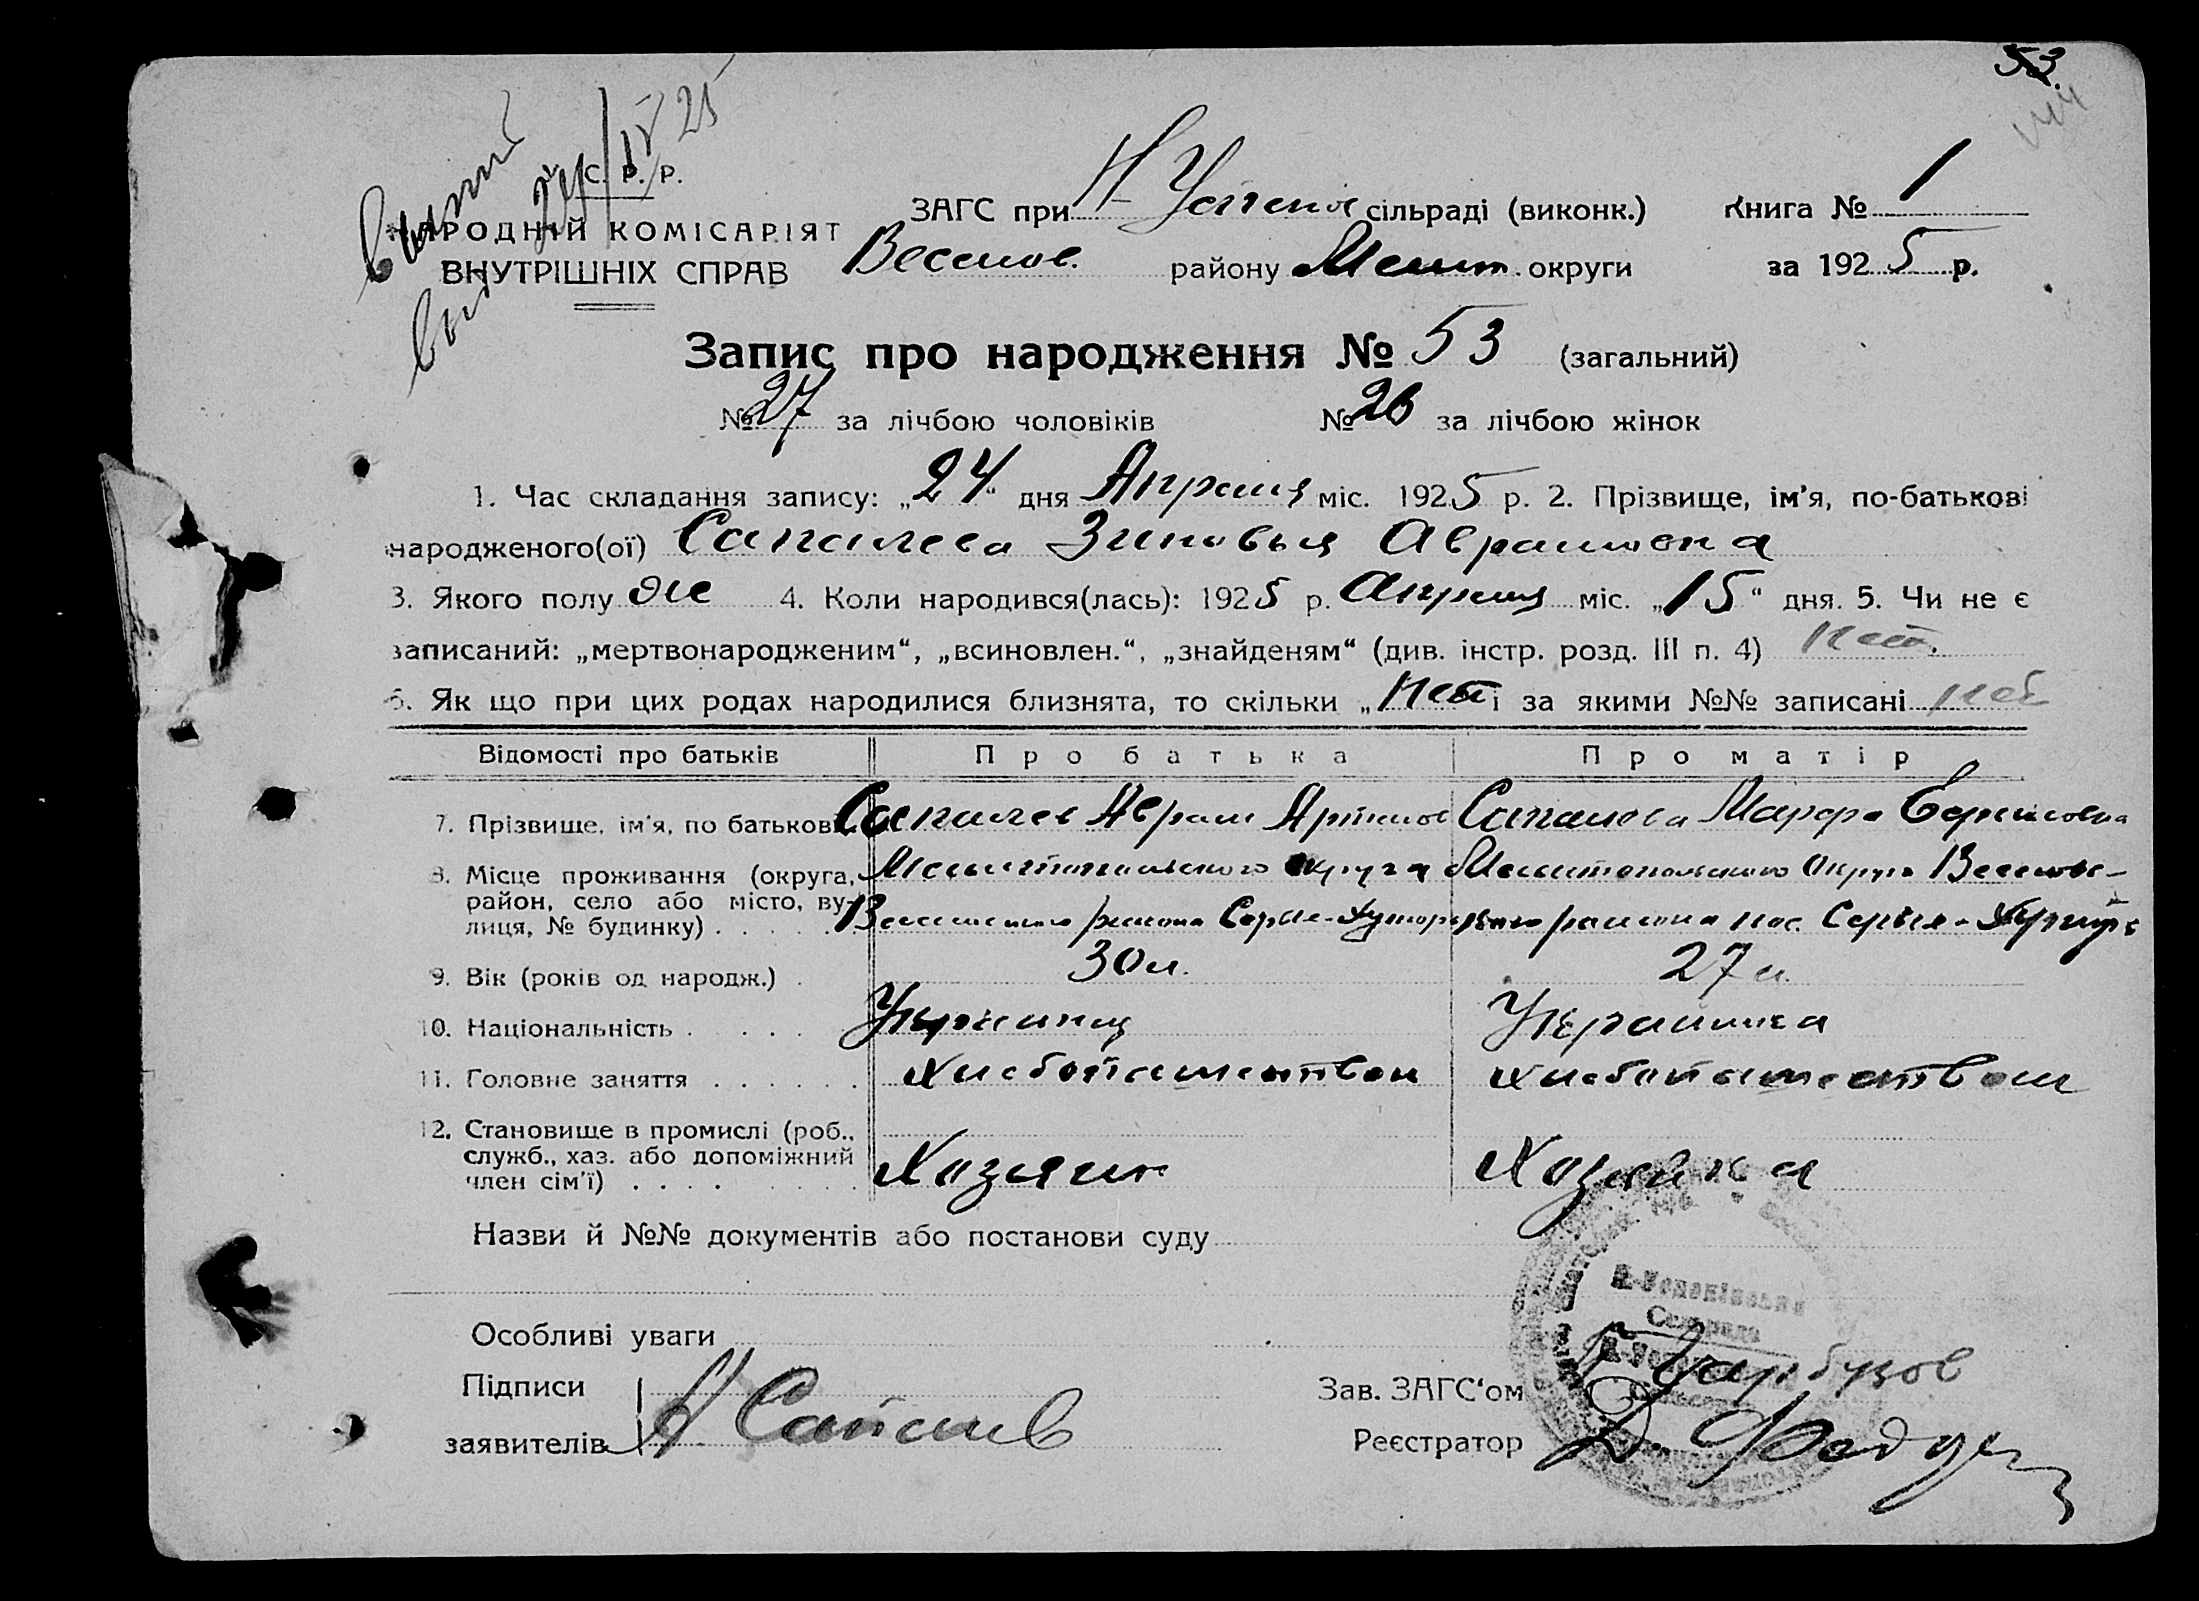 53
С. Р. Р.
НАРОДНІЙ КОМІСАРІЯТ
ВНУТРІШНІХ СПРАВ
ЗАГС при Н-Успенск сільраді (виконк.) Книга № 1
Веселов. району Мелит. округи за 1925 р.
Запис про народження № 53 (загальний)
№ 27 за лічбою чоловіків № 26 за лічбою жінок
1. Час складання запису: „24“ дня Апреля міс. 1925 р. 2. Прізвище, ім'я, по-батькові
народженого(ої) Сапалева Зиновья Аврамовна
3. Якого полу же 4. Коли народився(лась): 1925 р. Апреля міс. „15“ дня. 5. Чи не є
записаний: „мертвонародженим“, „всиновлен.“, „знайденям“ (див. інстр. розд. III п. 4) нет.
6. Як що при цих родах народилися близнята, то скільки „нет і за якими №№ записані нет
Відомості про батьків Про батька Про матір
7. Прізвище, ім'я, по батькові Сапалев Аврам Артемов Сапалева Марфа Борисовна
8. Місце проживання (округа, Мелитопольского округа Мелитопольского округа Веселовс-
район, село або місто, ву-
лиця, № будинку) . . . . . Веселовского района Серые-Хутора кого района пос. Серые-Хутора
9. Вік (років од народж.) . 30 л. 27 л.
10. Національність . . . . . Украинец Украинка
11. Головне заняття . . . . . . Хлебопашеством хлебопашеством
12. Становище в промислі (роб.,
служб., хаз. або допоміжний
член сім'ї) . . . . . . . . Хозяин Хозяйка
Назви й №№ документів або постанови суду
Особливі уваги
Підписи
заявителів А Сапалев
Зав. ЗАГС'ом Гарбузов
Реєстратор Д.